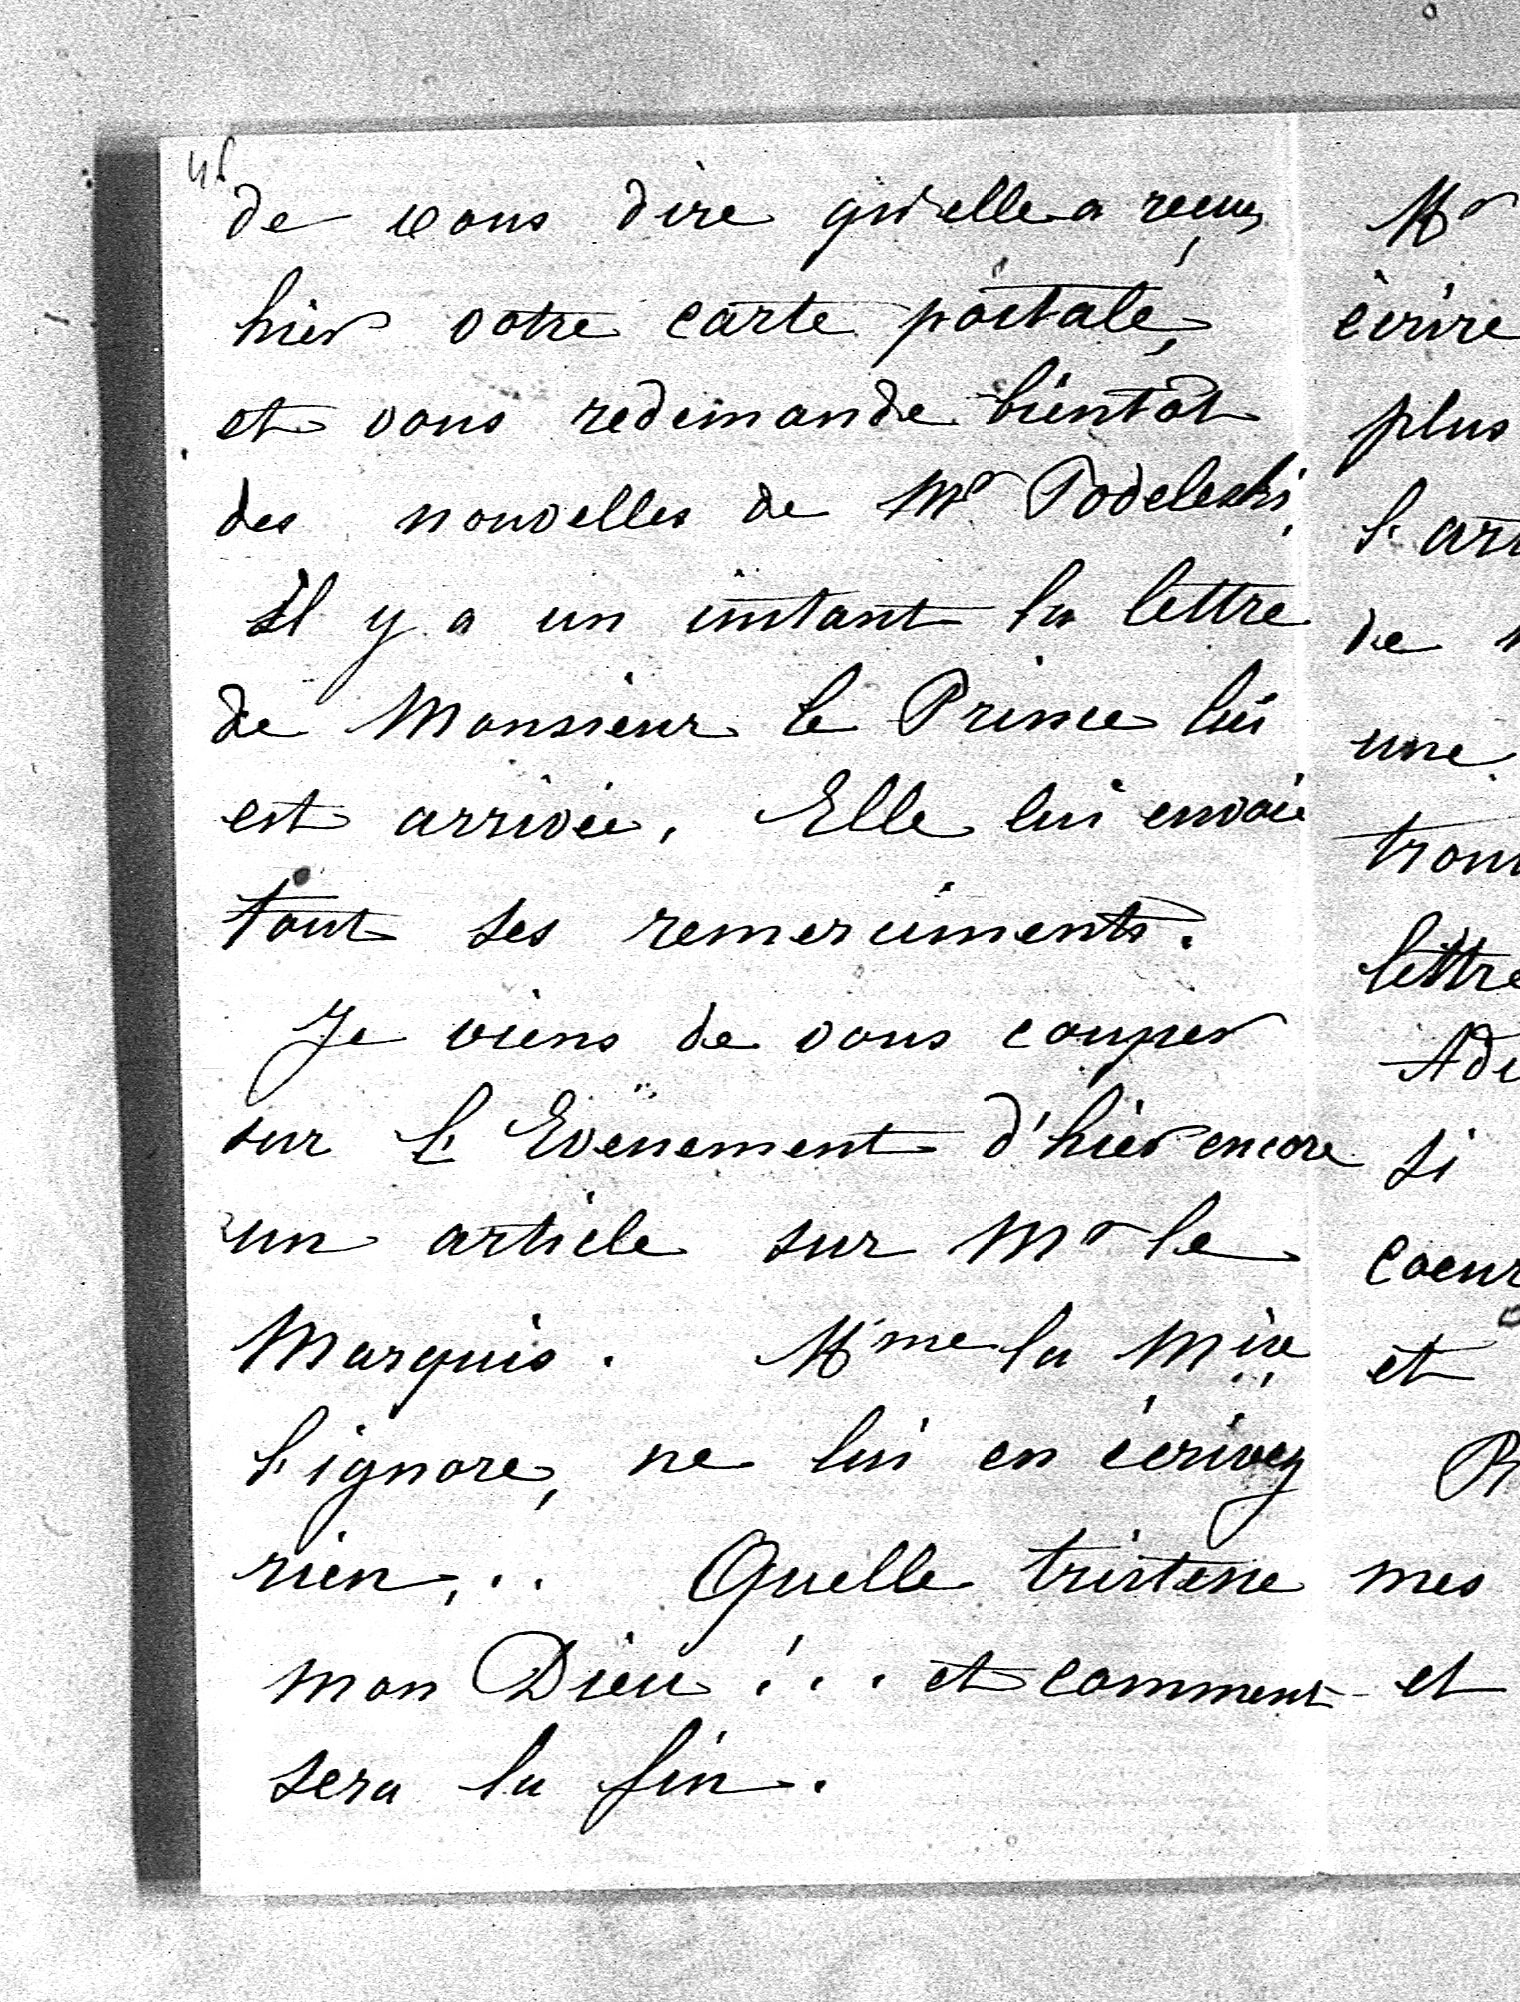 de vous dire qu'elle a reçue
hier votre carte postale,
et vous redemande bientôt
des nouvelles de Mr Podeleski.
Il y a un instant la lettre
de Monsieur le Prince lui
est arrivée. Elle lui envoie
tout ses remerciments.
Je viens de vous couper
sur L'Evenement d'hier encore
un article sur Mr le
Marquis. Mme la Mise
l'ignore, ne lui en écrivez
rien... Quelle tristesse
mon Dieu!... et comment
sera la fin.
Mr
écrire
plus
l'art
de
une
trouv
lettre
Adi
si
coeur
et
mes
et